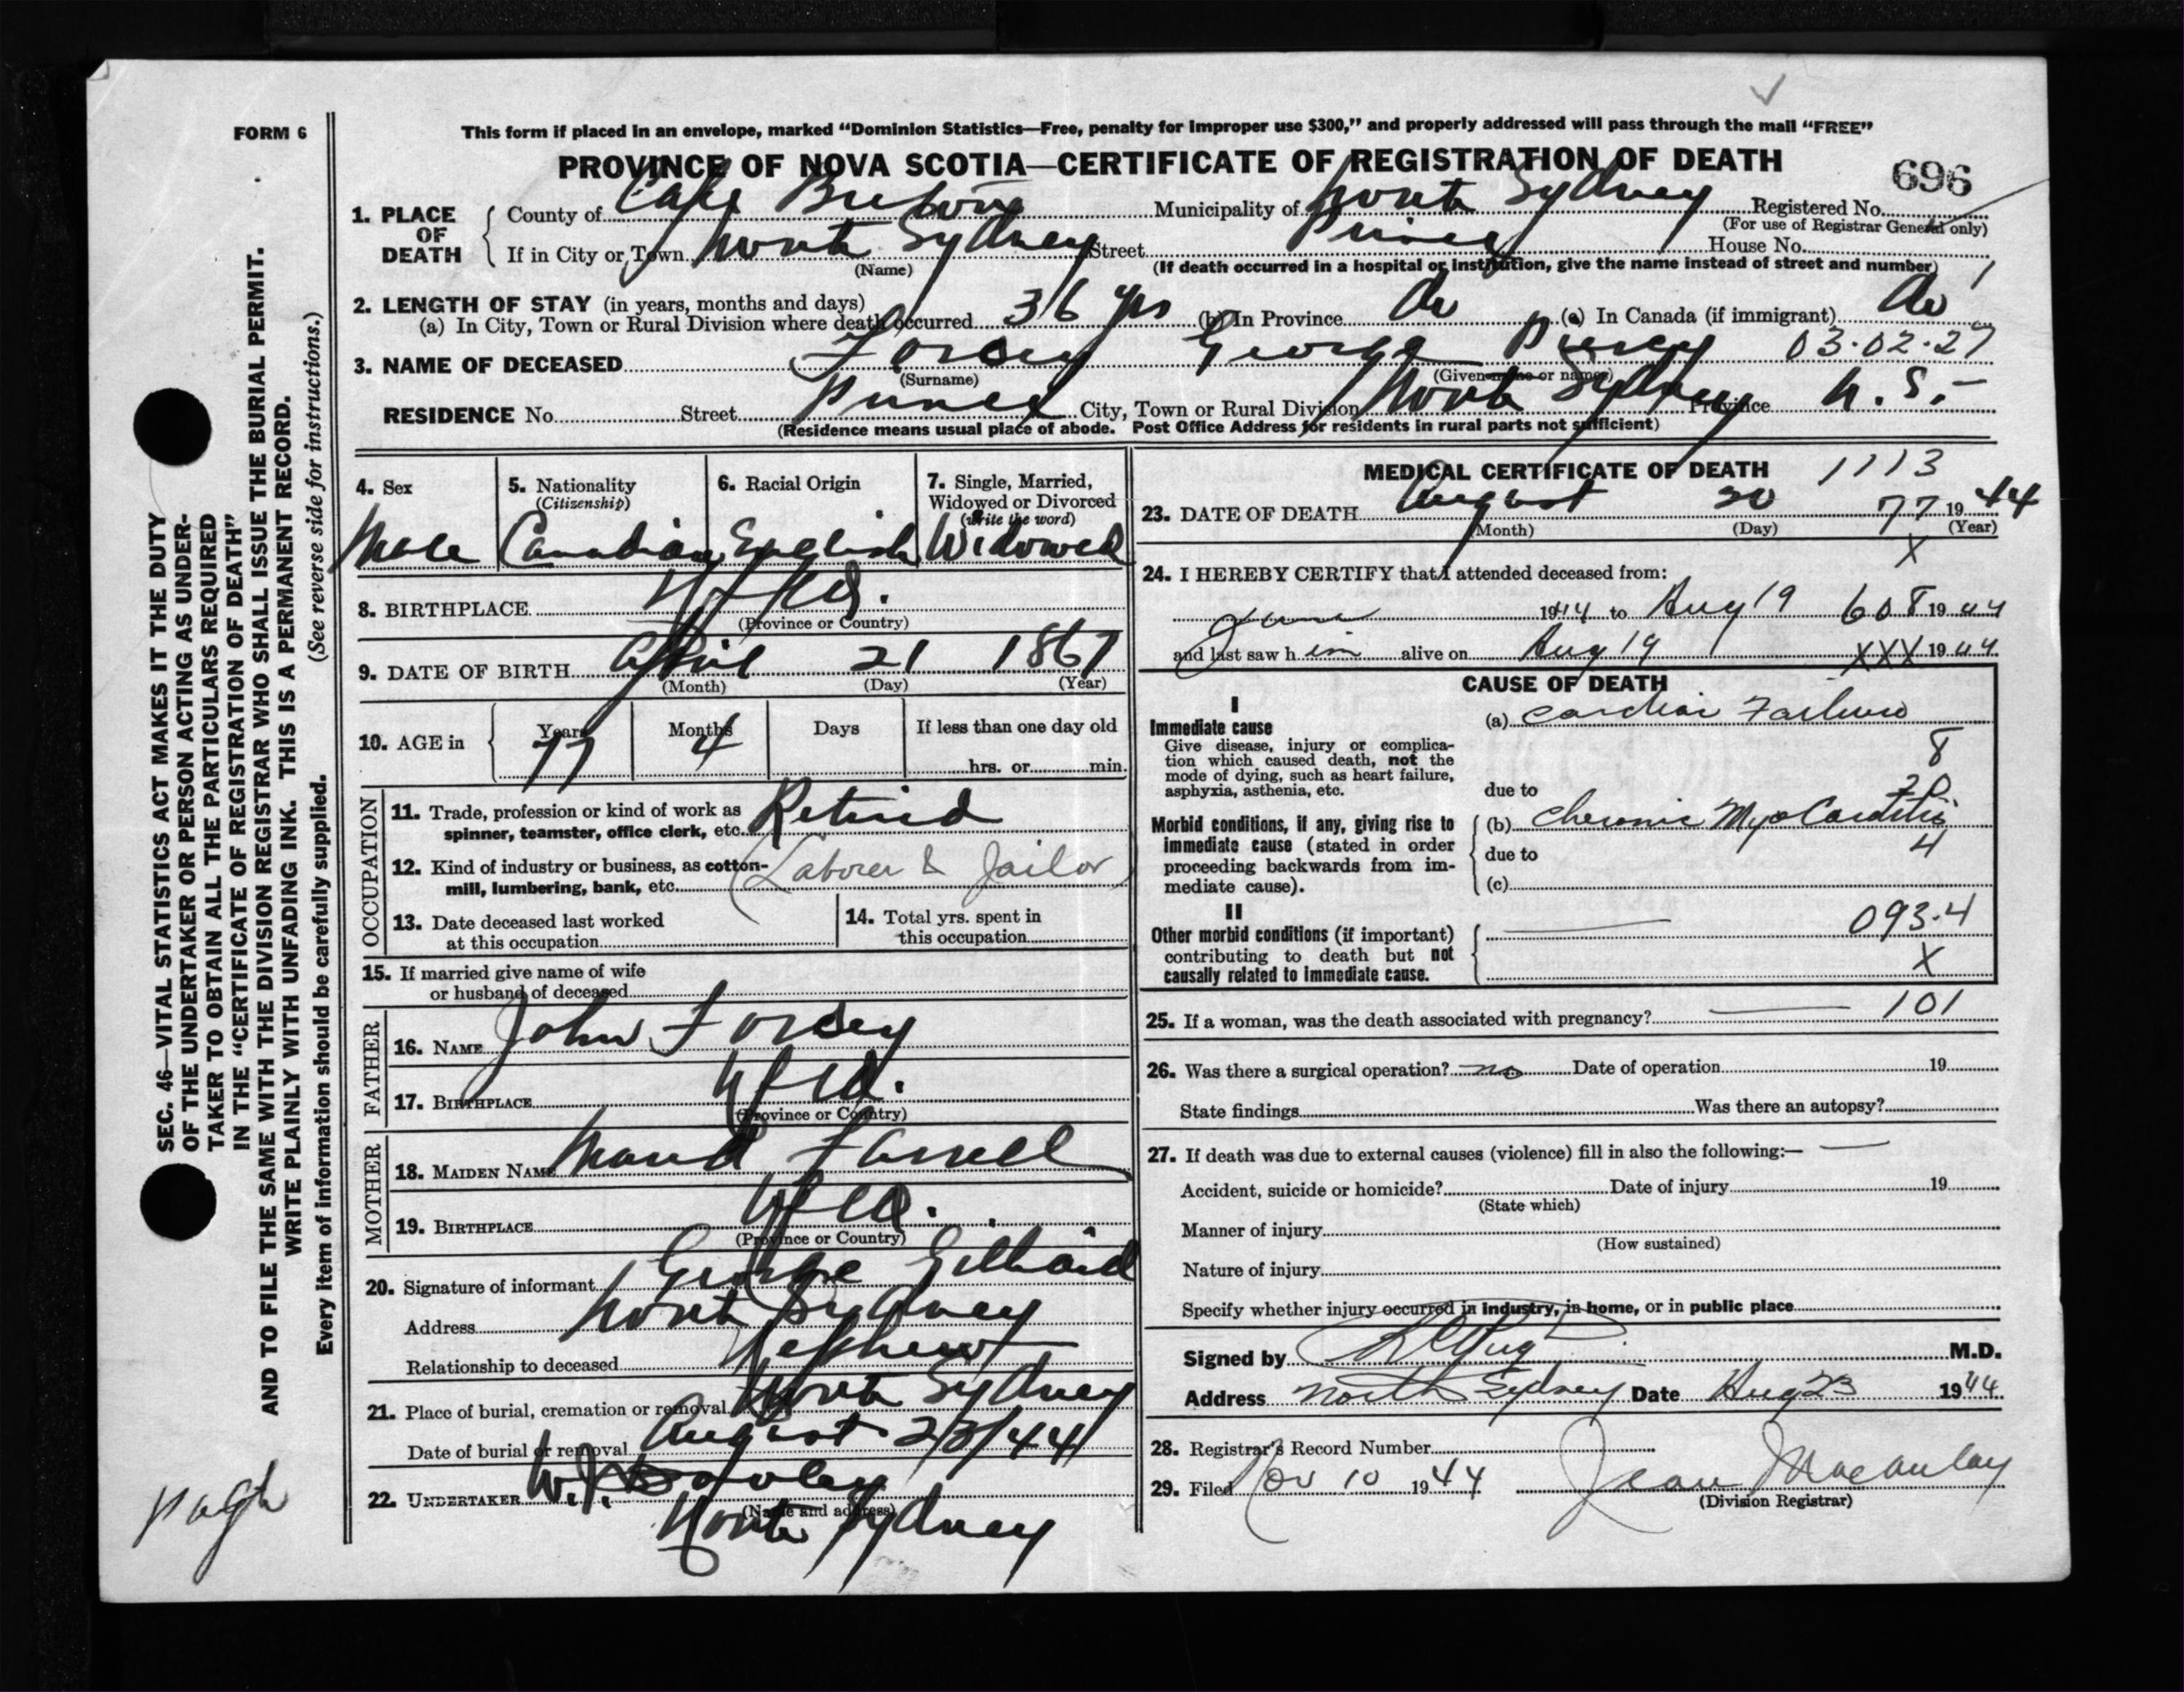 FORM 6
This form if placed in an envelope, marked “Dominion Statistics—Free, penalty for improper use $300,” and properly addressed will pass through the mail “FREE”
PROVINCE OF NOVA SCOTIA—CERTIFICATE OF REGISTRATION OF DEATH
696
1. PLACE OF DEATH
County of Cape Breton Municipality of North Sydney Registered No.
(For use of Registrar General only)
If in City or Town North Sydney Street Prince House No.
(Name) (If death occurred in a hospital or institution, give the name instead of street and number)
2. LENGTH OF STAY (in years, months and days)
(a) In City, Town or Rural Division where death occurred 36 yrs (b) In Province do (c) In Canada (if immigrant) do
3. NAME OF DECEASED Forsey George 03-02-27
(Surname) (Given name or names)
RESIDENCE No. Street Prince City, Town or Rural Division North Sydney Province N.S.-
(Residence means usual place of abode. Post Office Address for residents in rural parts not sufficient)
4. Sex
Male
5. Nationality
(Citizenship)
Canadian
6. Racial Origin
English
7. Single, Married,
Widowed or Divorced
(write the word)
Widowed
8. BIRTHPLACE Nfld.
(Province or Country)
9. DATE OF BIRTH April 21 1867
(Month) (Day) (Year)
10. AGE in
Years Months Days If less than one day old
77 4 hrs. or min.
OCCUPATION
11. Trade, profession or kind of work as
spinner, teamster, office clerk, etc. Retired
12. Kind of industry or business, as cotton-
mill, lumbering, bank, etc. (Laborer & Jailor)
13. Date deceased last worked
at this occupation
14. Total yrs. spent in
this occupation
15. If married give name of wife
or husband of deceased
FATHER
16. NAME John Forsey
17. BIRTHPLACE Nfld.
(Province or Country)
MOTHER
18. MAIDEN NAME Farrell
19. BIRTHPLACE Nfld.
(Province or Country)
20. Signature of informant George
Address North Sydney
Relationship to deceased Nephew
21. Place of burial, cremation or removal North Sydney
Date of burial or removal August 23/44
22. UNDERTAKER W.J. Dooley
(Name and address)
North Sydney
MEDICAL CERTIFICATE OF DEATH 1113
23. DATE OF DEATH August 20 77 1944
(Month) (Day) (Year)
X
24. I HEREBY CERTIFY that I attended deceased from:
June 1944 to Aug 19 608 1944
and last saw him alive on Aug 19 XXX 1944
CAUSE OF DEATH
I
Immediate cause
Give disease, injury or complica-
tion which caused death, not the
mode of dying, such as heart failure,
asphyxia, asthenia, etc.
(a) Cardiac Failure
8
due to
20
Morbid conditions, if any, giving rise to
immediate cause (stated in order
proceeding backwards from im-
mediate cause).
(b) Chronic Myocarditis
due to 4
(c)
II
Other morbid conditions (if important)
contributing to death but not
causally related to immediate cause.
093-4
X
25. If a woman, was the death associated with pregnancy? 101
26. Was there a surgical operation? no Date of operation 19
State findings Was there an autopsy?
27. If death was due to external causes (violence) fill in also the following:—
Accident, suicide or homicide? Date of injury 19
(State which)
Manner of injury
(How sustained)
Nature of injury
Specify whether injury occurred in industry, in home, or in public place
Signed by M.D.
Address North Sydney Date Aug 23 1944
28. Registrar's Record Number
29. Filed Nov 10 1944 Jean Macaulay
(Division Registrar)
SEC. 46—VITAL STATISTICS ACT MAKES IT THE DUTY
OF THE UNDERTAKER OR PERSON ACTING AS UNDER-
TAKER TO OBTAIN ALL THE PARTICULARS REQUIRED
IN THE “CERTIFICATE OF REGISTRATION OF DEATH”
AND TO FILE THE SAME WITH THE DIVISION REGISTRAR WHO SHALL ISSUE THE BURIAL PERMIT.
WRITE PLAINLY WITH UNFADING INK. THIS IS A PERMANENT RECORD.
(See reverse side for instructions.)
Every item of information should be carefully supplied.